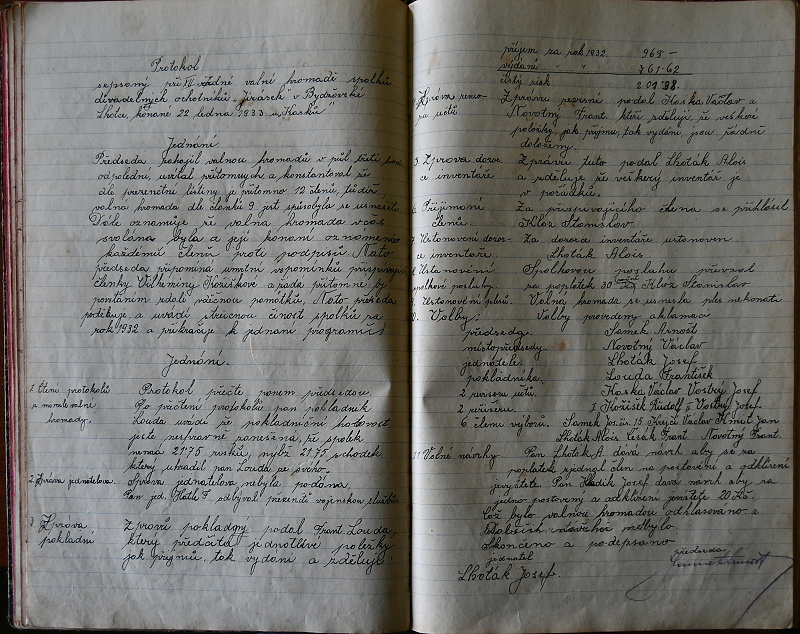 Protokol
sepsaný při VII řádné valné hromadě spolku
divadelných ochotníků „Jirásek" v Bydžovské
Lhotce, konané 22 ledna 1933 u „Kasků"
Jednání
Předseda zahájil valnou hromadu v půl třetí
odpoledne, uvítal přítomných a konstatoval že
dle presenční listiny je přítomno 12 členů, tudíž
valná hromada dle článků 9 jest způsobyla se usnášeti
Dále oznamuje že valná hromada včas
svolána byla a její konaní oznámeno
každému členu proti podpisů Nato
předseda připomíná umrtní vzpomínků
členky Vilheminy Kožíškové a žádá přítomné by
povstáním zdali vděčnou pamatků, Nato předseda
poděkuje a uvádí stručnou činost spolků za
rok 1932 a překračuje k jednání programu
Jednání.
1. Čtení protokolů
z minulé valné
hromady.
Protokol přečte, panem předsedou
Po přečtení protokolů pan pokladník
Louda uvádí že pokladniční hotovost
jeste nesprávně zanešená, že spolek
nemá 21.75 nybž 21.75 schodek
který uhradil pan Louda ze svého.
2. Zpráva jednatelova.
Zpráva jednatelova nebyla podána.
Pan jed. F. odbýval presenčni vojenskou službu
3. Zpráva
pokladní
Zprávu pokladny podal Frant Louda,
který předčítá jednotlivé položky
jak příjmů, tak vydání a zděluje
příjem za rok 1932 963 -
vydání " " 761.62
čistý zisk 201 38.
Zpráva reviso-
rů učtů
Zprávu revisní podal Kaska Václav a
Novotný Frant. kteří zdělují, že veškeré
položky, jak příjmu, tak vydání, jsou řádně
doloženy.
5. Zpráva dozor-
ce inventáře
Zprávu tuto podal Lhoták Alois
a zděluje že veškerý inventář je
v pořádků.
6. Přijímání
členů.
Za přispívajícího člena se přihlásil
Kloz Stanislav.
7. Ustanovení dozor-
ce inventáře.
Za dozorce inventáře ustanoven
Lhoták Alois.
8. Ustanovení
spolkové posluhy.
Spolkovou posluhu převzal
za poplatek 30 Kč Kloz Stanislav
9. Ustanovení plesů.
Valná hromada se usnesla ples nekonati
10. Volby:
Volby provedeny aklamací
předseda Samek Arnošt
místopředsedy Novotný Václav
jednatele. Lhoták Josef.
pokladníka. Louda František
2 revisoru učtů. Kaska Václav Vostrý Josef
2 Kožíšek Rudolf Vostrý Josef.
6 členů výborů. Samek Jos. čís. 15 Krejčí Václav Kmet Jan
Lhoták Alois Česák Frant Novotný Frant.
11. Volné návrhy.
Pan Lhoták A. dává návrh aby se za
poplatek zjednal člen na postavění a odklízení
jevyštěte Pan Kadik Josef dává návrh aby za
jedno postavený a odklízení jeviště 20 Kč.
Což bylo valnou hromadou odhlasováno a
dalších návrhů nebylo.
Skončeno a podepsáno
jednatel
předseda
Lhoták Josef.